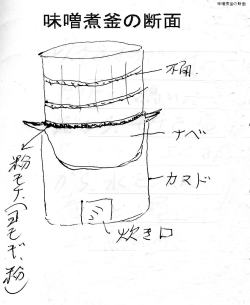 味噌煮釜の断面
味噌煮釜の断面
桶
ナベ
カマド
炊き口
粉モチ(ヨモギ、粉)